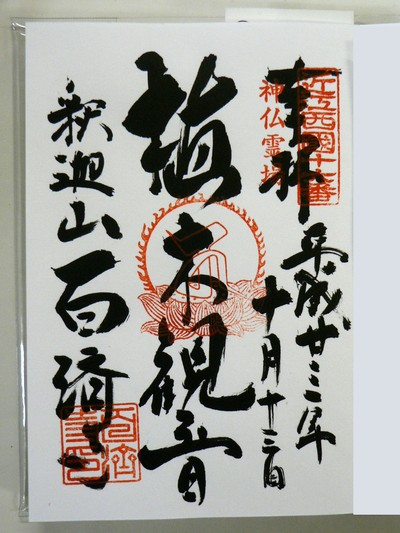 近江西國十六番
神仏霊場
奉拝
平成廿三年
十月十三日
植木観音
釋迦山百済寺
百濟寺印